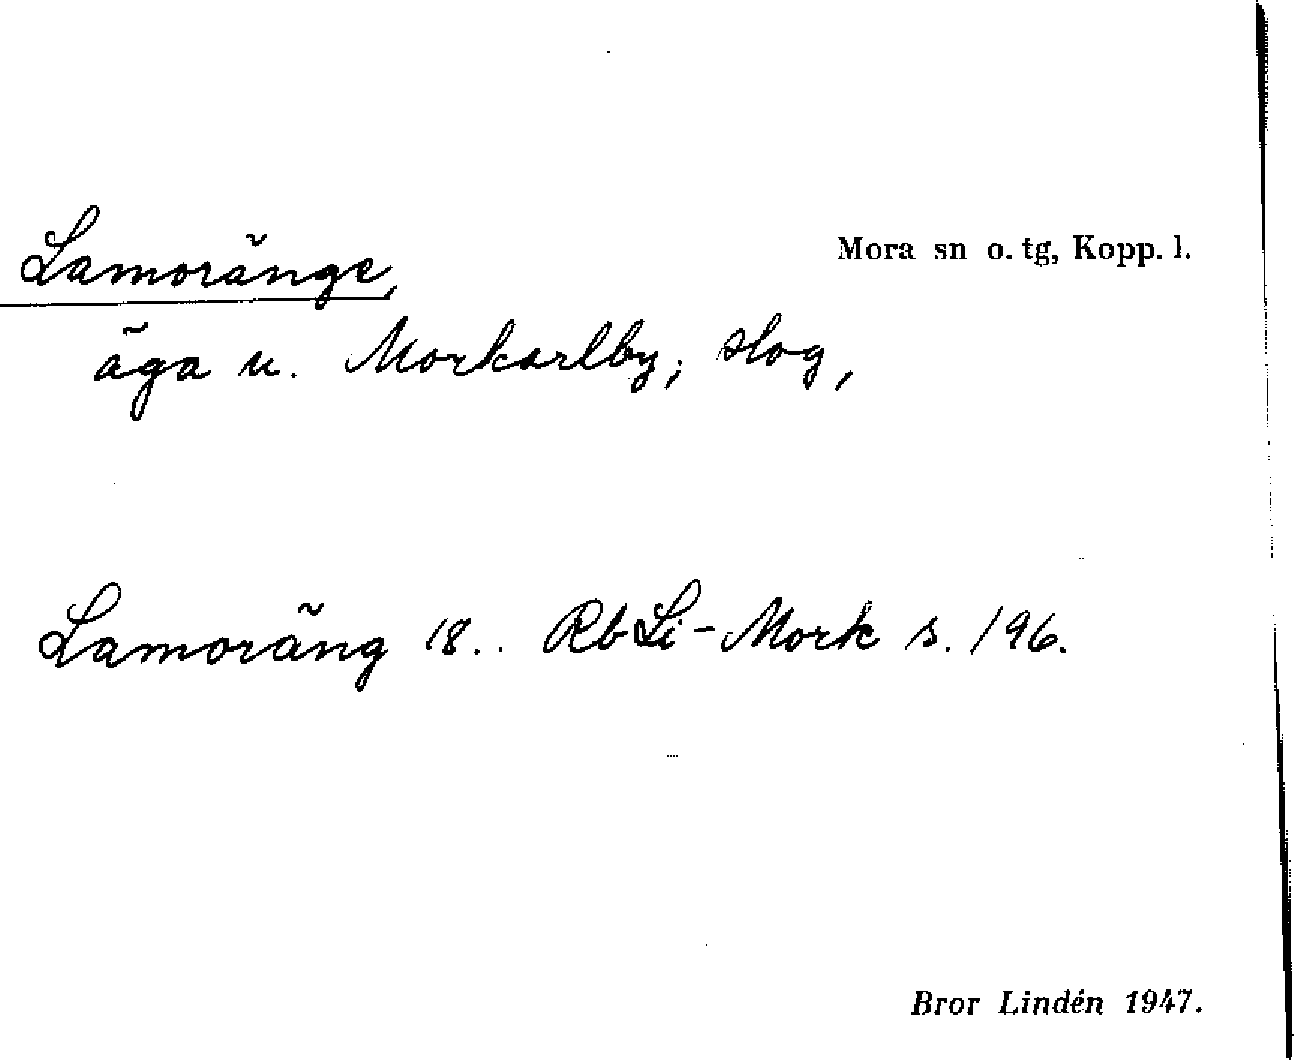 Lamoränge,
Mora sn o. tg, Kopp. l.
äga u. Morkarlby; slog,
Lamoräng 18.. Rb Li-Mork s. 196.
Bror Lindén 1947.